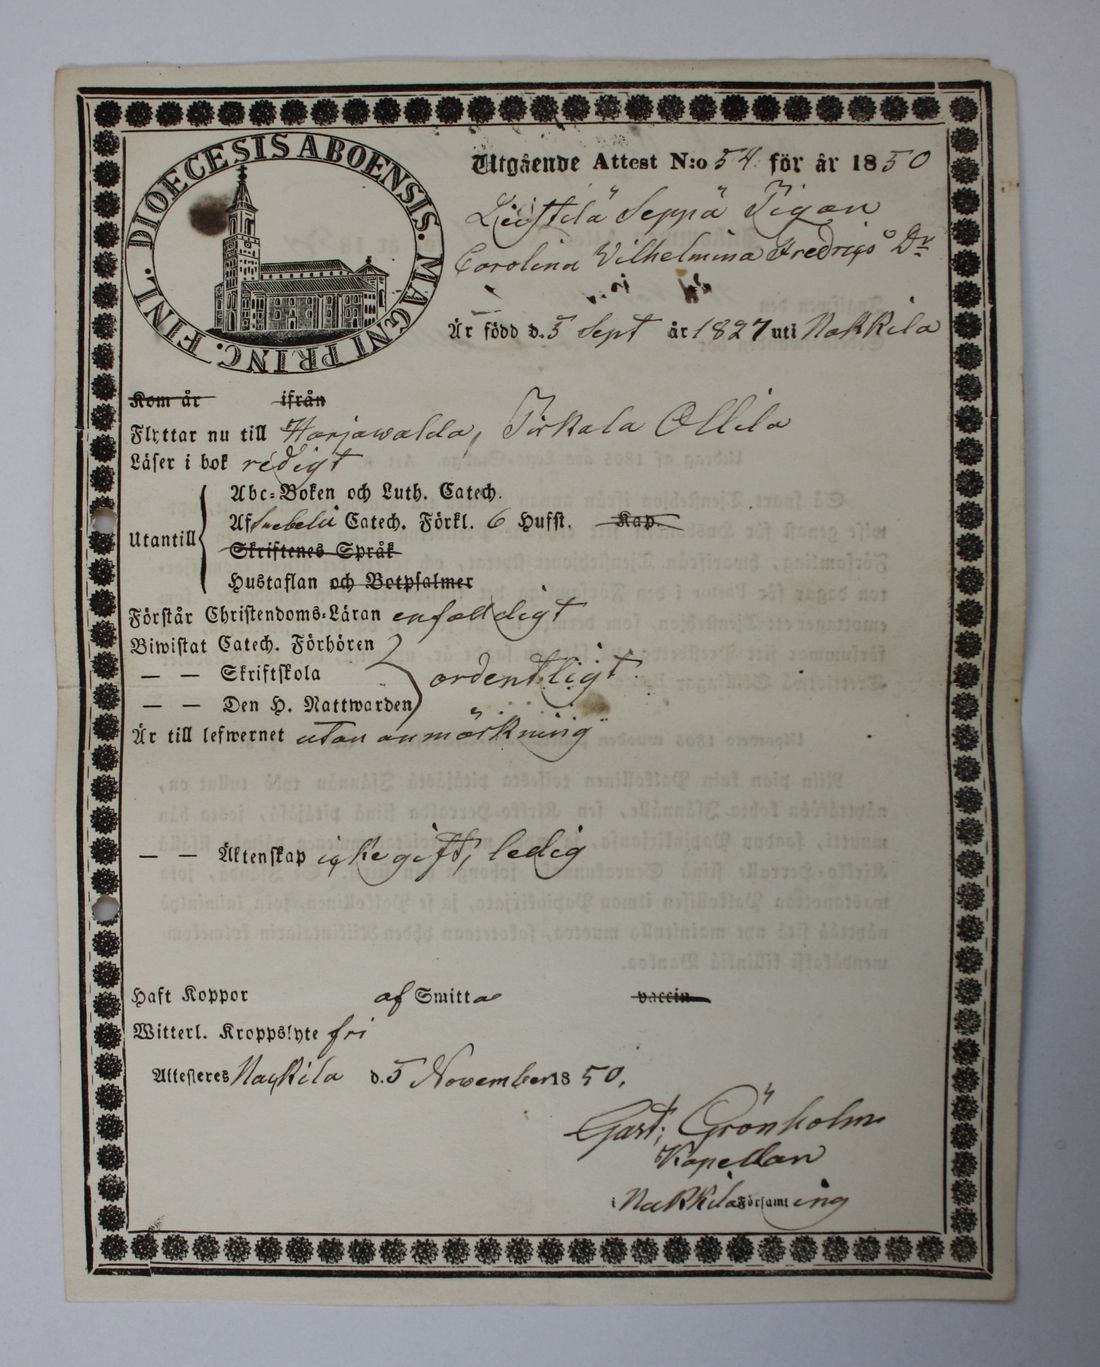 DIOECESIS ABOENSIS. MAGNI PRINC. FINL.
Utgående Attest N:o 54 för år 1850
Leistilä Seppä Pigan
Carolina Vilhelmina Fredrigs Dr
Är född d. 5 Sept år 1827 uti Nakkila
Kom år ifrån
Flyttar nu till Harjawalda, Pirkala Ollila
Läser i bok redigt
Utantill
Abc-Boken och Luth. Catech.
Af Svebelii Catech. Förkl. 6 Hufst. Kap.
Skriftenes Språk
Hustaflan och Botpsalmer
Förstår Christendoms-Läran enfaldigt
Biwistat Catech. Förhören
— — Skriftskola ordentligt
— — Den H. Nattwarden
Är till lefwernet utan anmärkning
— — Äktenskap icke gift, ledig
Haft Koppor af Smitta vaccin
Witterl. Kroppslyte fri
Attesteres Nackila d. 5 November 1850.
Gust. Grönholm
Kapellan
i Nakkila Församling